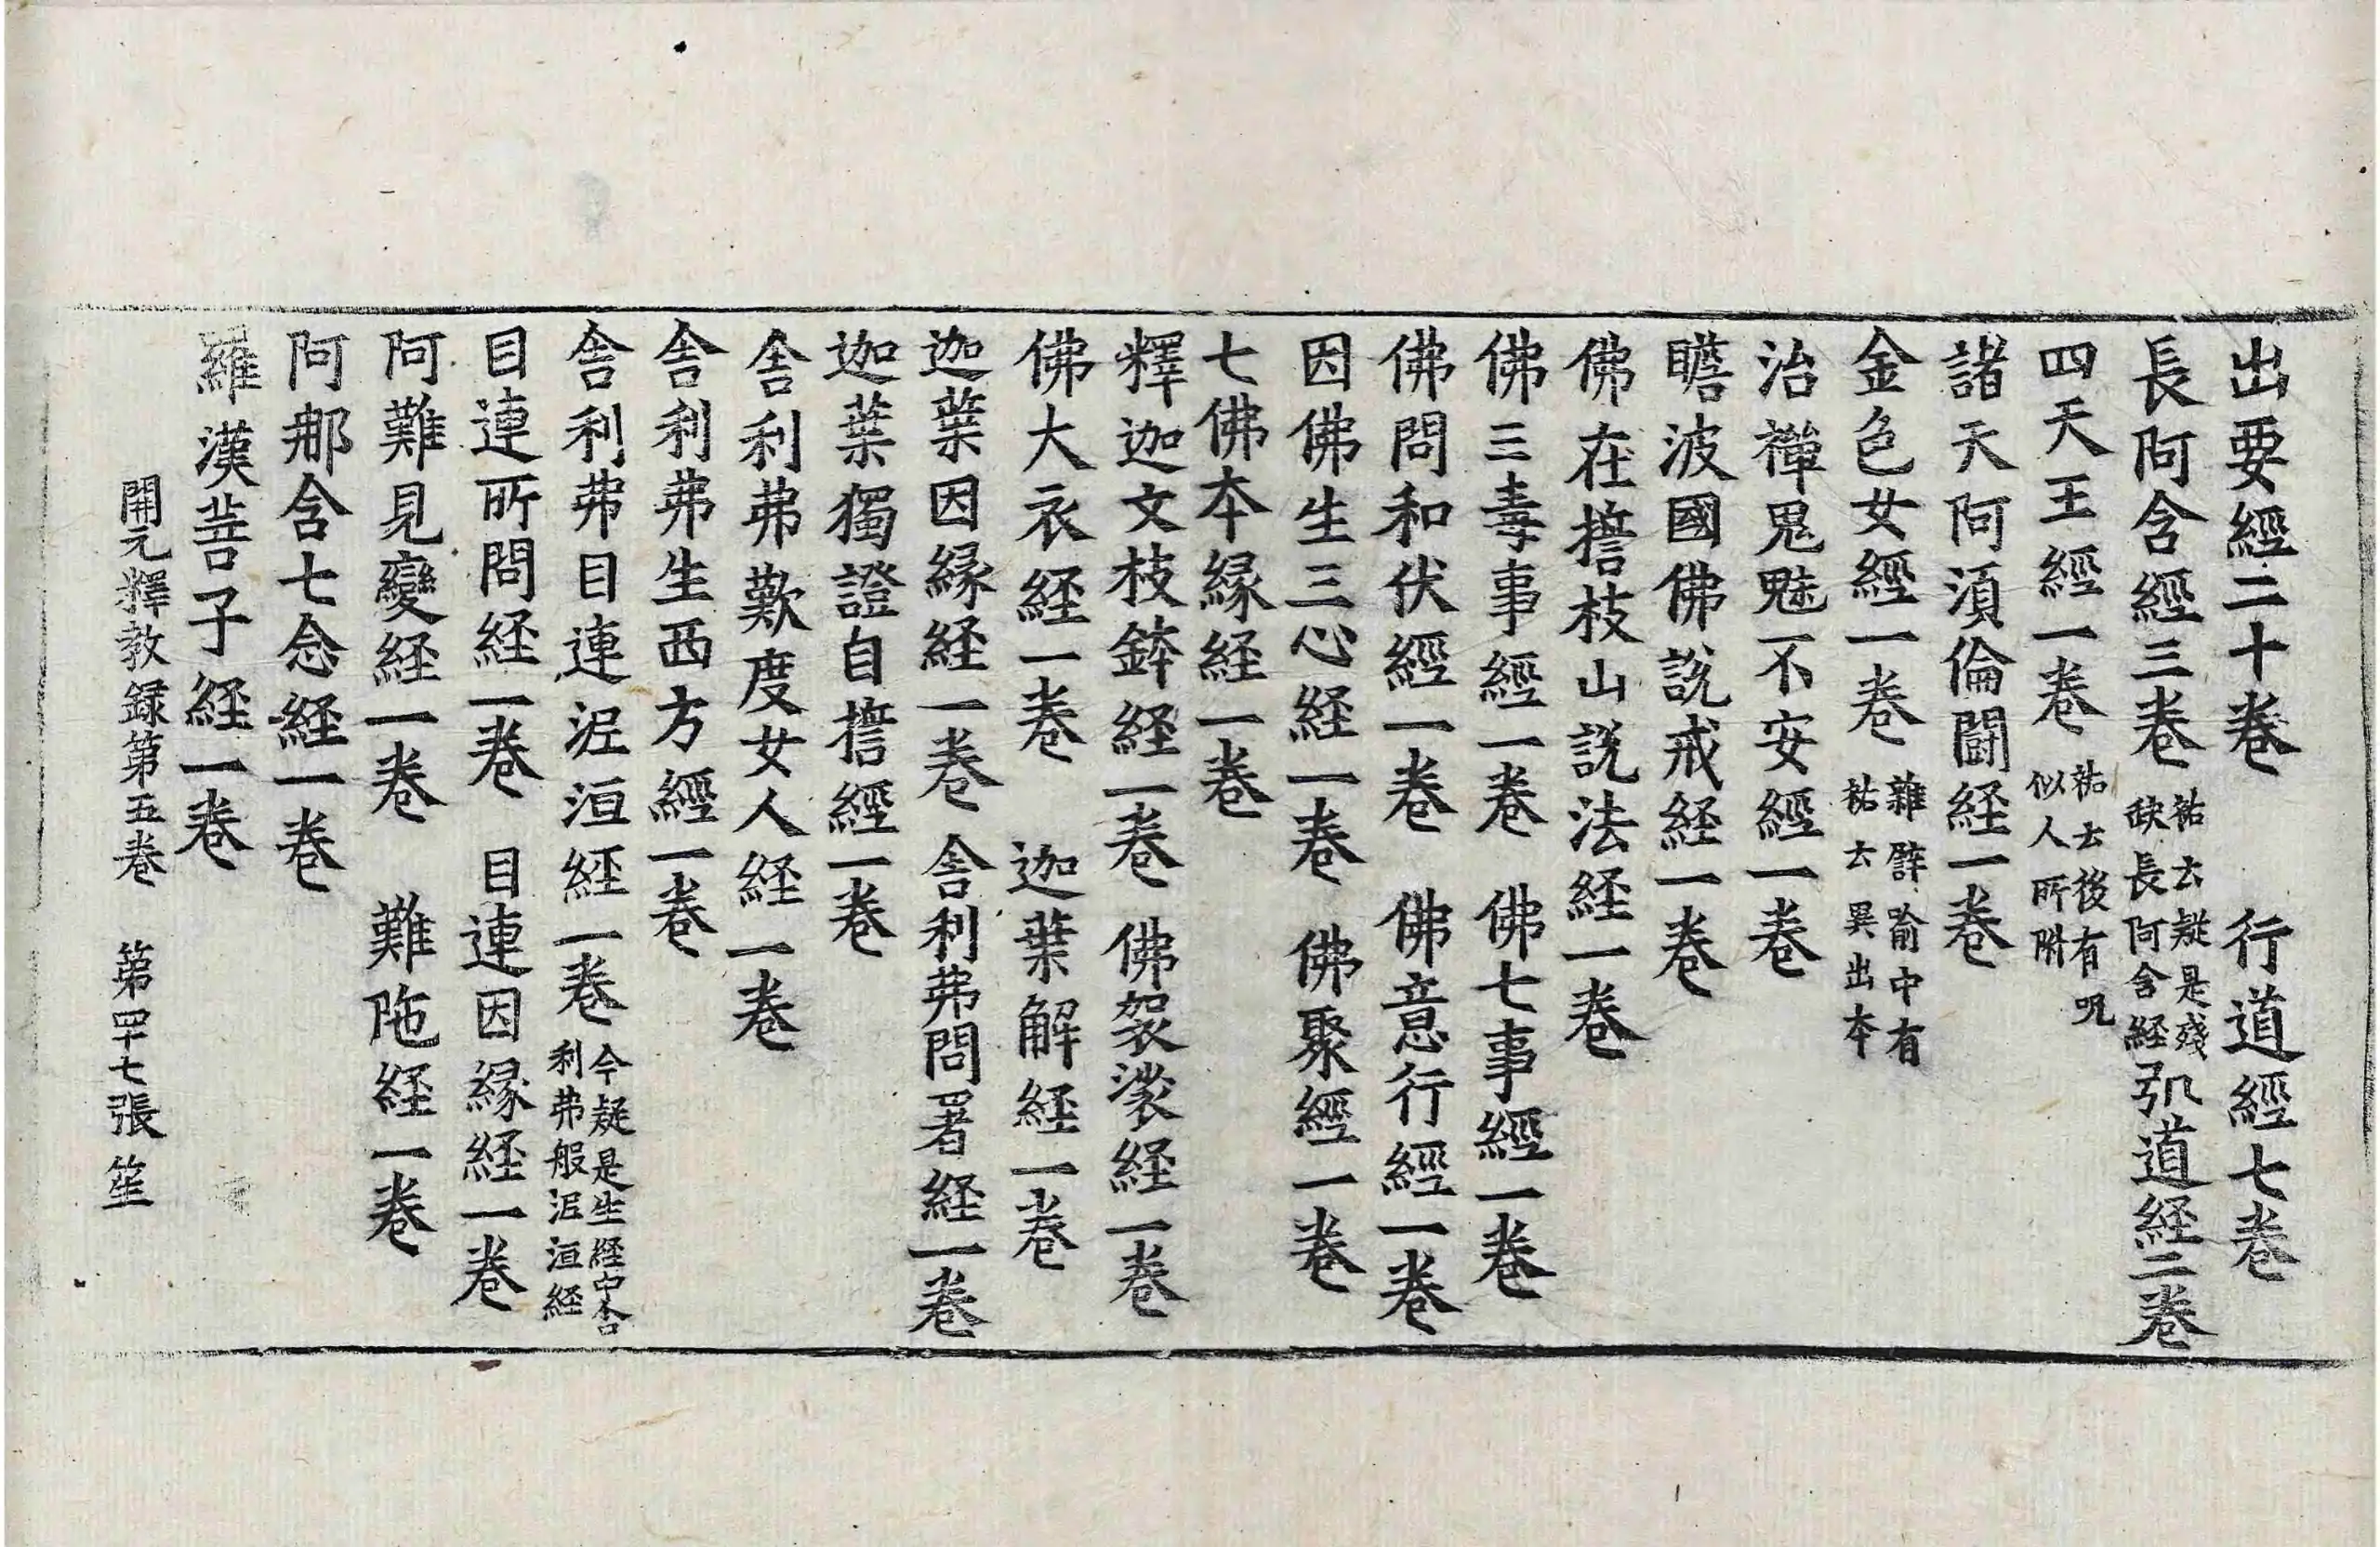 出要經二十卷　行道經七卷
長阿含經三卷 祐云疑是殘缺長阿含経 弘道経二卷
四天王經一卷 祐云後有呪似人所附
諸天阿須倫鬪経一卷
金色女經一卷 雜譬喻中有祐云異出本
治禪鬼魅不安經一卷
瞻波國佛說戒経一卷
佛在誓枝山說法経一卷
佛三毒事經一卷　佛七事經一卷
佛問和伏經一卷　佛意行經一卷
因佛生三心経一卷　佛聚經一卷
七佛本緣経一卷
釋迦文枝鉢経一卷　佛袈裟経一卷
佛大衣経一卷　迦葉解経一卷
迦葉因緣経一卷　舎利弗問署経一卷
迦葉獨證自誓經一卷
舎利弗歎度女人経一卷
舎利弗生西方經一卷
舎利弗目連泥洹経一卷 今疑是生経中舎利弗般泥洹経
目連所問経一卷　目連因緣経一卷
阿難見變経一卷　難陁経一卷
阿那含七念経一卷
羅漢菩子経一卷
開元釋教録第五卷　第四十七張　笙